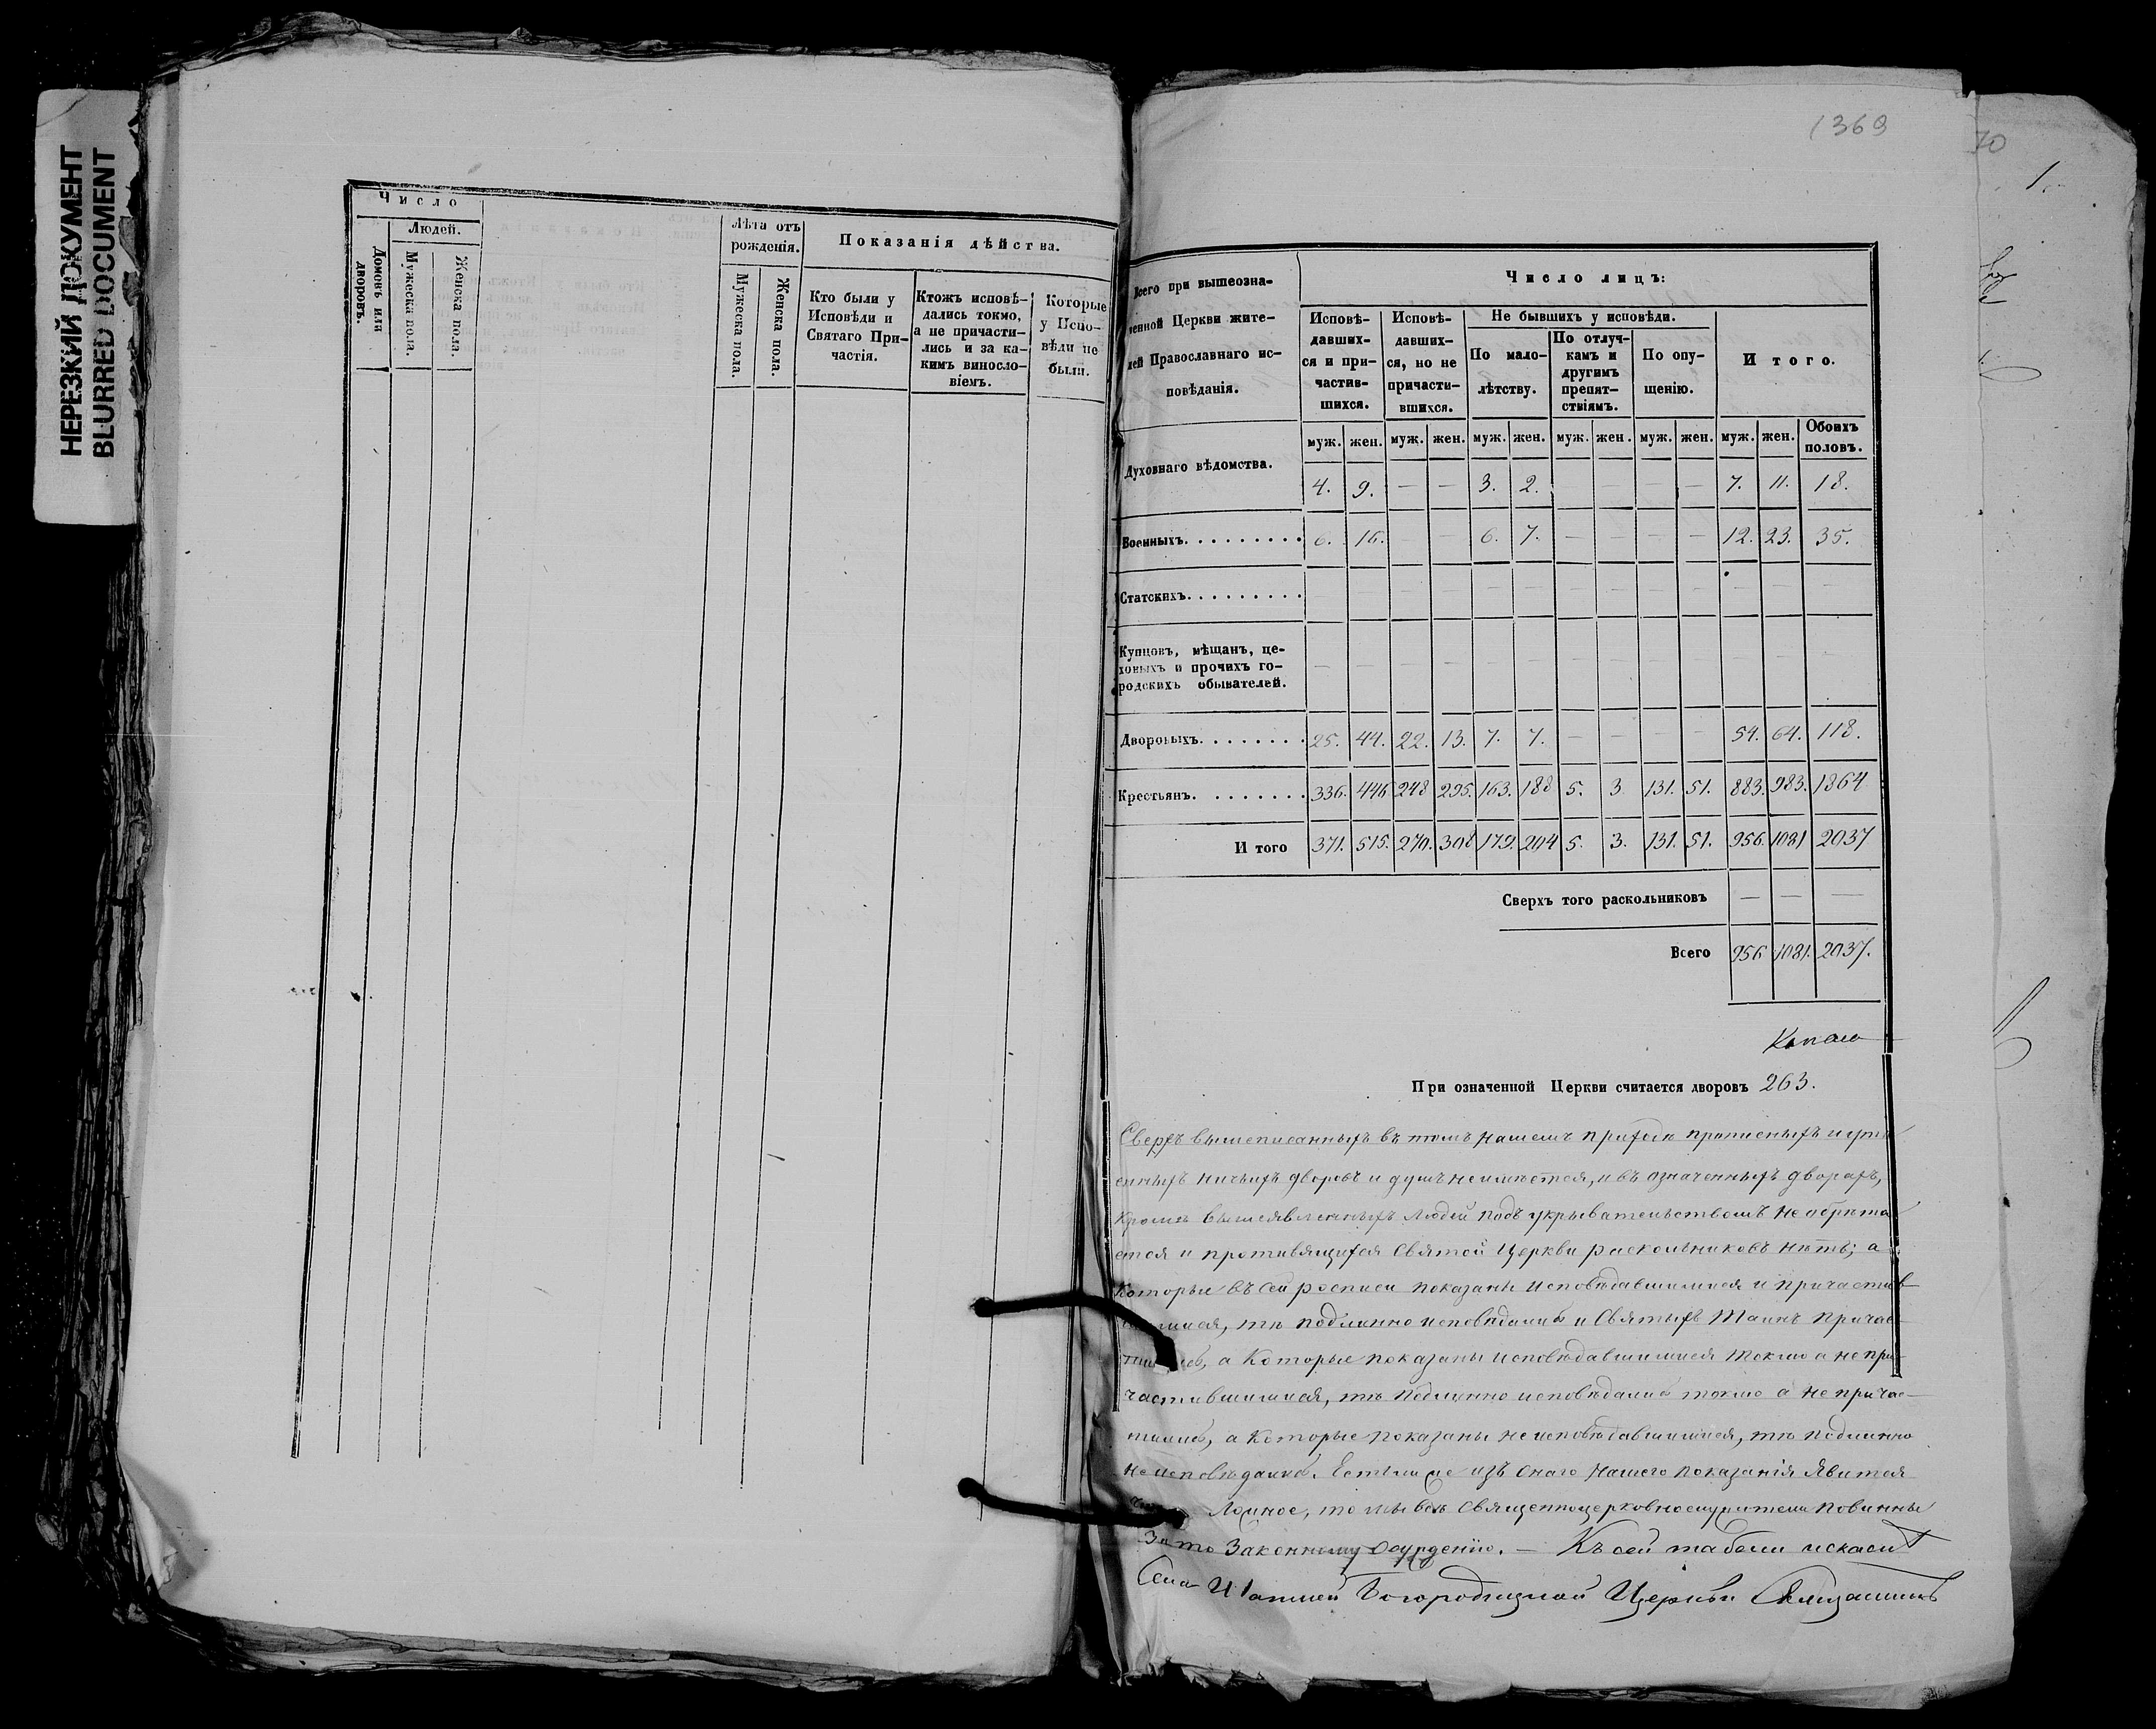 НЕРЕЗКИЙ ДОКУМЕНТ
BLURRED DOCUMENT
Число
Домовъ или дворовъ.
Людей.
Мужеска пола.
Женска пола.
Лѣта отъ рожденія.
Мужеска пола.
Женска пола.
Показанія дѣйства.
Кто были у
Исповѣди и
Святаго При-
частія.
Ктожъ исповѣ-
дались токмо,
а не причасти-
лись и за ка-
кимъ виносло-
віемъ.
Которые
у Испо-
вѣди не
были.
1369
70
Всего при вышеозна-
ченной Церкви жите-
лей Православнаго ис-
повѣданія.
Число лицъ:
Исповѣ-
давших-
ся и при-
частив-
шихся.
Исповѣ-
давших-
ся, но не
причасти-
вшихся.
Не бывшихъ у исповѣди.
По мало-
лѣтству.
По отлуч-
камъ и
другимъ
препят-
ствіямъ.
По опу-
щенію.
Итого.
муж. жен. муж. жен. муж. жен. муж. жен. муж. жен. муж. жен. Обоихъ половъ.
Духовнаго вѣдомства. 4. 9. — — 3. 2. — — — — 7. 11. 18.
Военныхъ. 6. 16. — — 6. 7. — — — — 12. 23. 35.
Статскихъ. — — — — — — — — — — — — —
Купцовъ, мѣщанъ, це-
ховыхъ и прочихъ го-
родскихъ обывателей. — — — — — — — — — — — — —
Дворовыхъ. 25. 44. 22. 13. 7. 7. — — — — 54. 64. 118.
Крестьянъ. 336. 446 248 295. 163. 188 5. 3 131. 51. 883. 983. 1864
Итого 371. 515. 270. 308 179. 204 5. 3. 131. 51. 956. 1081 2037
Сверхъ того раскольниковъ — — —
Всего 956 1081. 2037.
При означенной Церкви считается дворовъ 263.
Сверхъ вышеписанныхъ въ томъ нашемъ приходѣ прописныхъ и
енныхъ ничьихъ дворовъ и душъ неимѣется, и въ означенныхъ дворахъ,
Кромѣ вышеявленныхъ людей подъ укрывательствомъ не обрѣта
ется и противящихся Святой Церкви раскольниковъ нѣтъ; а
Которые въ сей росписи показаны исповѣдавшимися и причастив
шимися, тѣ подлинно исповѣдались и Святыхъ Таинъ причас-
тились, а Которые показаны исповѣдавшимися токмо а не при-
частившимися, тѣ подлинно исповѣдались токмо а не причас-
тились, а Которые показаны не исповѣдавшимися, тѣ подлинно
не исповѣдались. Естьли же изъ сего нашего показанія явится
Ложное, то мы всѣ Священноцерковнослужители повинны
За то Законному осужденію. — Къ сей табели
Села Богородицкой Церкви Священникъ